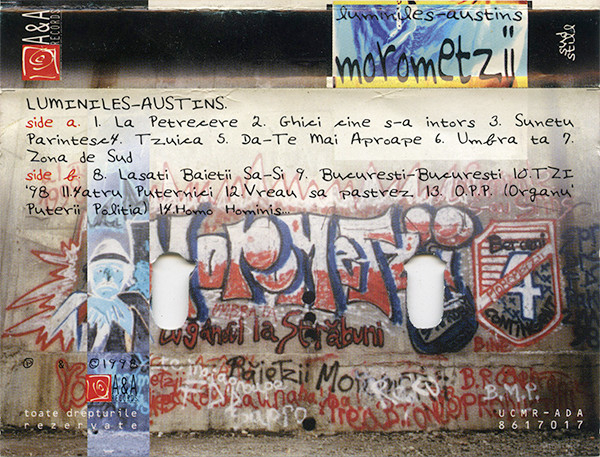 A&A
RECORDS
luminiles-austins
morometzii
sud
stile
LUMINILES-AUSTINS.
side a. 1. La Petrecere 2. Ghici cine s-a intors 3. Sunetu
Parintesc4. Tzuica 5. Da-Te Mai Aproape 6. Umbra ta 7.
Zona de Sud
side b. 8. Lasati Baietii Sa-Si 9. Bucuresti-Bucuresti 10.TZI
'98 11.4atru Puternici 12.Vreau sa pastrez 13. O.P.P. (Organu'
Puterii Politia) 14.Homo Hominis...
MoroMetzii
Boroni
4
la Străbuni
℗ & ©1998
A&A
RECORDS
toate drepturile
rezervate
Băietzii
B.M.P.
UCMR-ADA
8617017